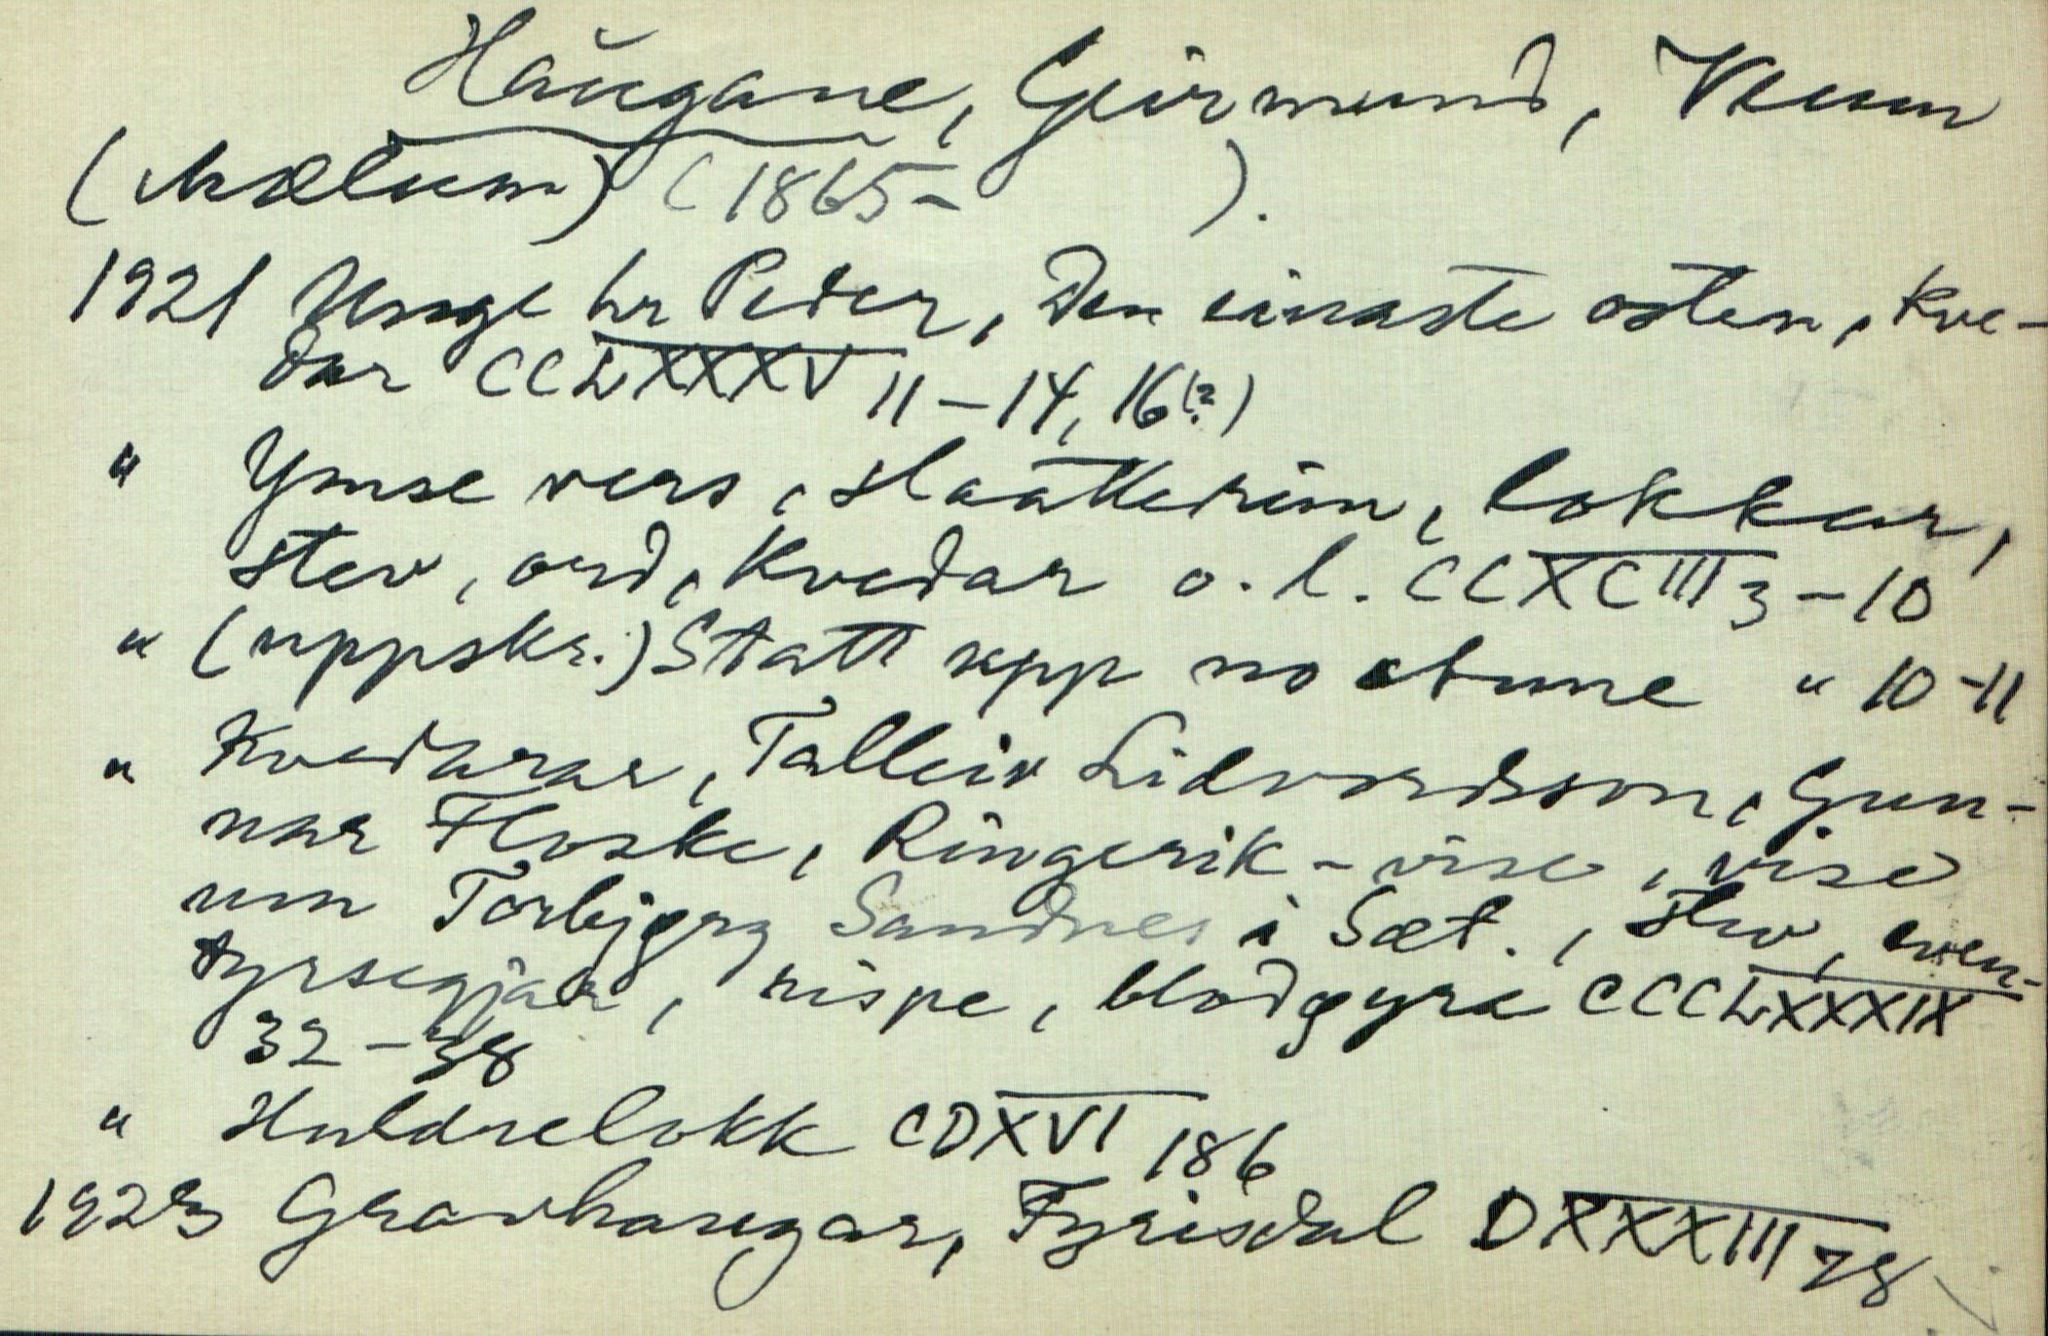 Haugane, Geirmund, Veum
(Mælum) (1865- ).
1921 Unge hr Peder, Den einaste osten, kve-
dar CCLXXXV 11-14, 16(?)
" Ymse vers, slaatterim, lokkar,
stev, ord, kvedar o.l. CCXCIII 3-10
" (uppskr.) Statt upp no " 10-11
" Kvedarar, Talleiv Lidvordsson, Gun-
nar Floske, Ringerik-vise, vise
um Torbjørg Sandnes i Sæt., stev, even-
tyrsegjar, rispe, blodgyre CCCLXXXIX
32-38
" Huldrelokk CDXVI 186
1923 Gravhaugar, Fyrisdal DXXXIII 78